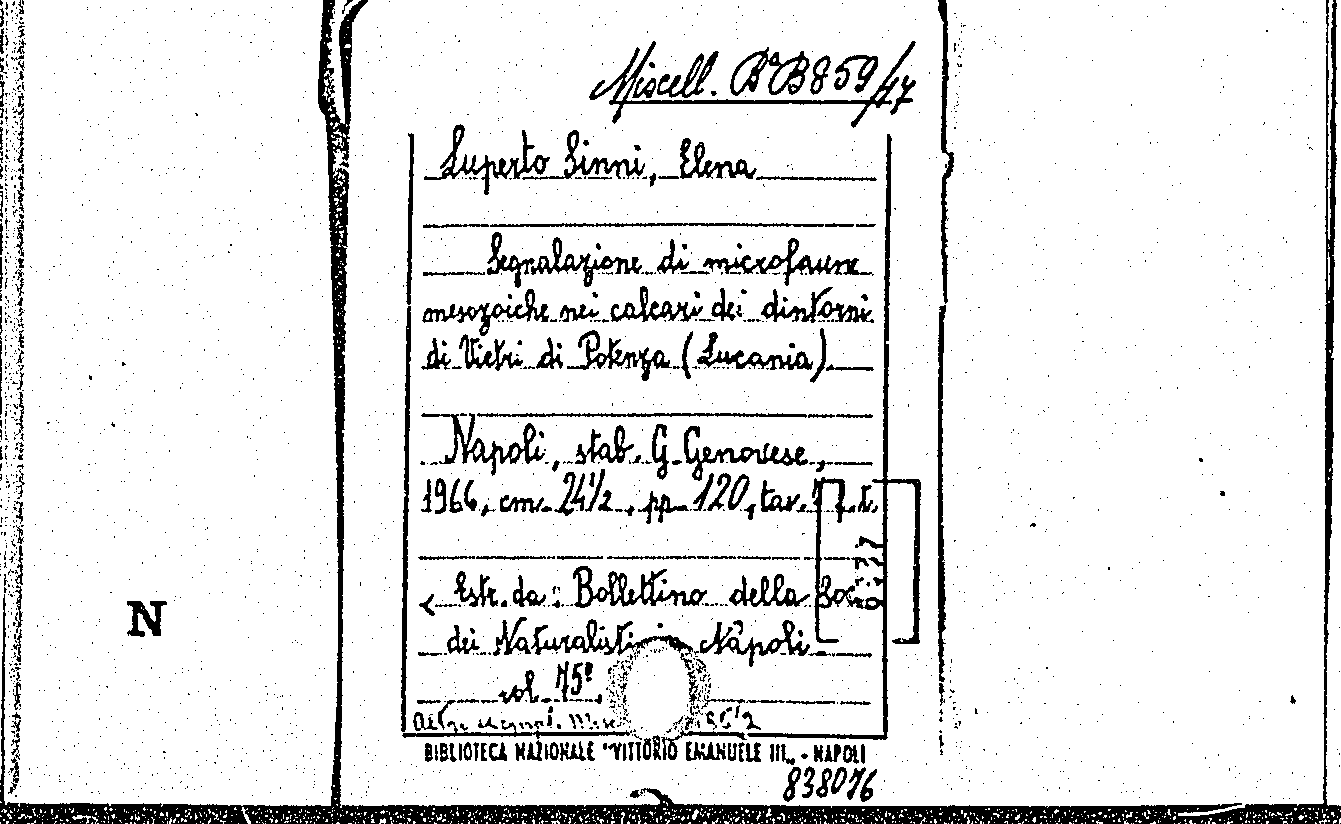 Miscell. Bª B 859/47
Luperto Sinni, Elena
Segnalazione di microfaune
mesozoiche nei calcari dei dintorni
di Vietri di Potenza (Lucania).
Napoli, stab. G. Genovese,
1966, cm. 24½, pp. 120, tav. f.t.
< Estr. da: Bollettino della Soc.
dei Naturalisti in Nàpoli
vol. 75º,
N
BIBLIOTECA NAZIONALE "VITTORIO EMANUELE III„ - NAPOLI
838076